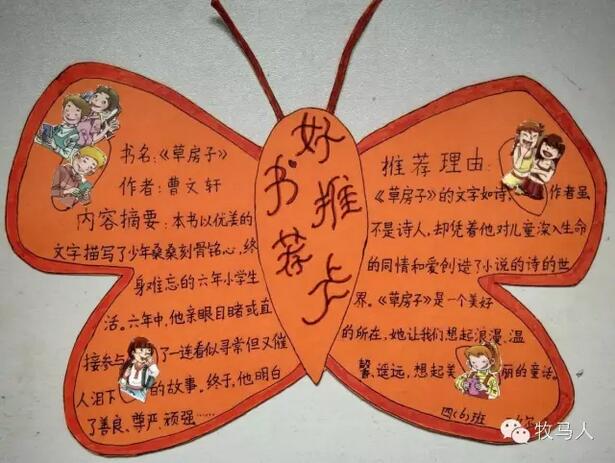 书名:《草房子》
作者:曹文轩
内容摘要:本书以优美的
文字描写了少年桑桑刻骨铭心,终
身难忘的六年小学生
活。六年中,他亲眼目睹或直
接参与了一连看似寻常但又催
人泪下的故事。终于,他明白
了善良、尊严、顽强……
好书推荐卡
推荐理由:
《草房子》的文字如诗,作者虽
不是诗人,却凭着他对儿童深入生命
的同情和爱创造了小说的诗的世
界。《草房子》是一个美好
的所在,她让我们想起浪漫、温
馨、遥远,想起美丽的童话。
四(6)班
牧马人